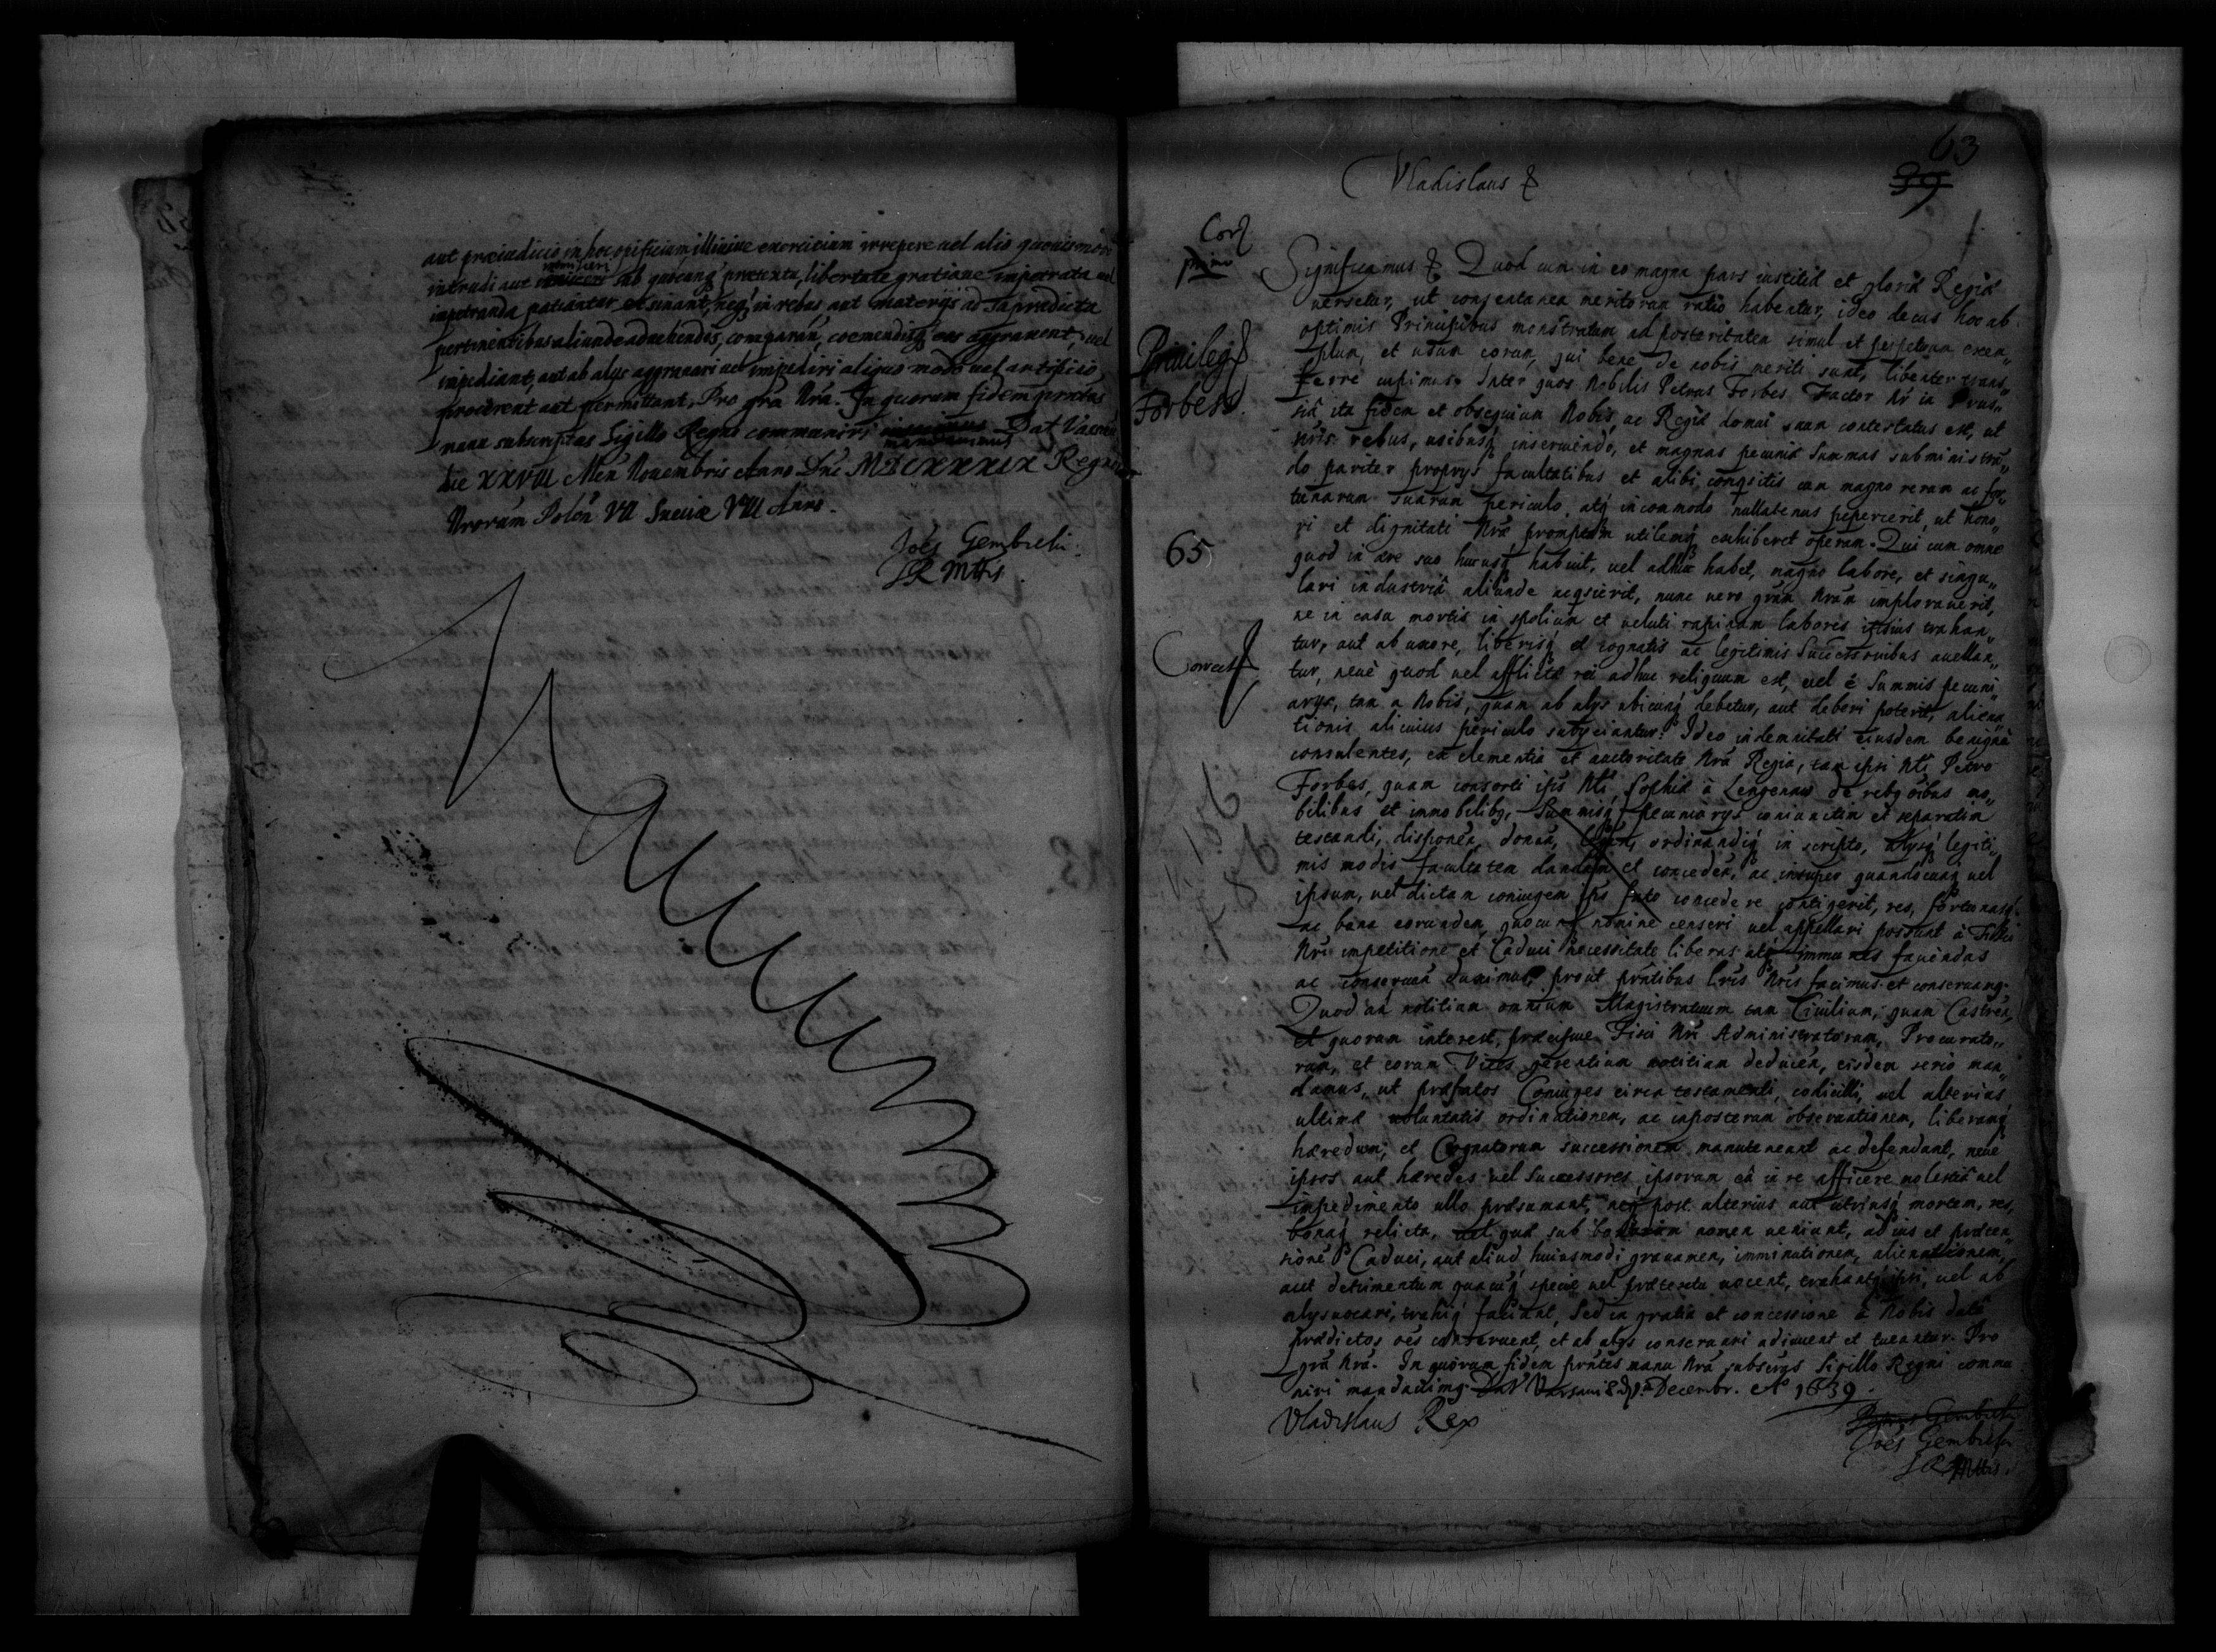 aut præiudicio in hoc opificium illiusue exercitium irrepere uel alio quouis modo
intrudi aut sub quocunq' prætextu, libertate gratiaue impetrata uel
impetranda patiantur et sinant, neq' in rebus aut materijs ad supradicta
pertinentibus aliunde aduehendis, comparan, coemendisq' eos aggrauent, uel
impediant, aut ab alijs aggrauari uel impediri aliquo modo uel artificio
procurent aut permittant, Pro gra Nra. In quorum fidem præntes
manu subscriptas Sigillo Regni communiri mandauimus Dat Varsau
die XXVIII Men Nouembris Anno Dni MDCXXXIX Regno
Nrorum Polon VII Sueciæ VIII Anno.
Joes Gembicki
SRMttis
63
39
Vladislaus
Cor
Significamus Quod cum in eo magna pars iustitiæ et gloriæ Regiæ
uersetur, ut consentanea meritorum ratio habeatur, ideo decus hoc ab
optimis Principibus monstratum ad posteritatem simul et perpetuum exem„
plum, et usum eorum, qui bene de nobis meriti sunt, libenter trans„
ferre cupimus. Inter quos Nobilis Petrus Forbes Factor Nr in Prus„
siâ ita fidem et obsequium Nobis, ac Regiæ domui suum contestatus est, ut
Priuileg
Forbes
nris rebus, usibusq inseruiendo, et magnas pecuniæ summas subministran„
do pariter proprijs facultatibus et alibi conqsitis cum magno rerum ac for„
tunarum suarum periculo, atq incommodo nullatenus pepercerit, ut hono„
ri et dignitati Nræ promptam utilemq exhiberet operam. Qui cum omne
65
quod in ære suo hucusq habuit, uel adhuc habet, magno labore, et singu„
lari industriâ aliunde acqsierit, nunc uero gram Nram implorauerit,
ne in casu mortis in spolium et ueluti rapinam labores ipsius trahan„
tur, aut ab uxore, liberisq et cognatis ac legitimis Successoribus auellan„
Correct
tur, neue quod uel afflictæ rei adhuc reliquum est, uel è Summis pecuni„
arijs, tam a Nobis, quam ab alijs ubicunq debetur, aut deberi poterit, aliena„
tionis alicuius periculo subijciantur: Ideo indemnitati eiusdem benignè
consulentes, ex clementia et auctoritate Nra Regia, tam ipsi Nli Petro
Forbes, quam consorti ipis Nli Sophiæ à Lengenaw de rebq oibus mo„
bilibus et immobilibq, Summisq pecuniarijs coniunctim et separatim
testandi, disponen, donan, ordinandiq in scripto, alysq legiti„
mis modis facultatem dandam et conceden, ac insuper quandocunq uel
ipsum, uel dictam coniugem ipis fato concedere contigerit, res, fortunasq
ac bona eorundem, quocunq nomine censeri uel appellari possunt à Fisci
Nri impetitione et Caduci necessitate liberas atq immunes faciendas
ac conseruan duximus, prout præntibus lris Nris facimus et conseruamq.
Quod ad notitiam omnium Magistratuum tam Ciuilium, quam Castren,
et quorum interest, præcipue Fisci Nri Administratorum, Procurato„
rum, et eorum Vices gerentium notitiam deducen, eisdem serio man„
damus, ut præfatos Coniuges circa testamenti, codicilli, uel alterius
ultimæ uoluntatis ordinationem, ac inposterum obseruationem, liberamq
hæredum, et Cognatorum successionem manuteneant ac defendant, neue
ipsos aut hæredes uel Successores ipsorum eâ in re afficere molestiâ uel
impedimento ullo præsumant, neq post alterius aut utriusq mortem, res,
bonaq relicta, uel quæ sub bonorum nomen ueniunt, ad ius et præten„
sione Caduci, aut aliud huiusmodi grauamen, imminutionem, alienationem,
aut detrimentum quacuq specie uel prætextu uocent, trahantq ipsi, uel ab
alijs uocari, trahiq faciant, Sed in gratia et concessione à Nobis data
prædictos oes conseruent, et ab alijs conseruari adiuuent et tueantur. Pro
grâ Nrâ. In quorum fidem præntes manu Nrâ subscrps Sigillo Regni commu
niri mandauimq. Dat Varsaui Decembr. Aº 1639.
Vladislaus Rex
Joes Gembicki
SRMttis